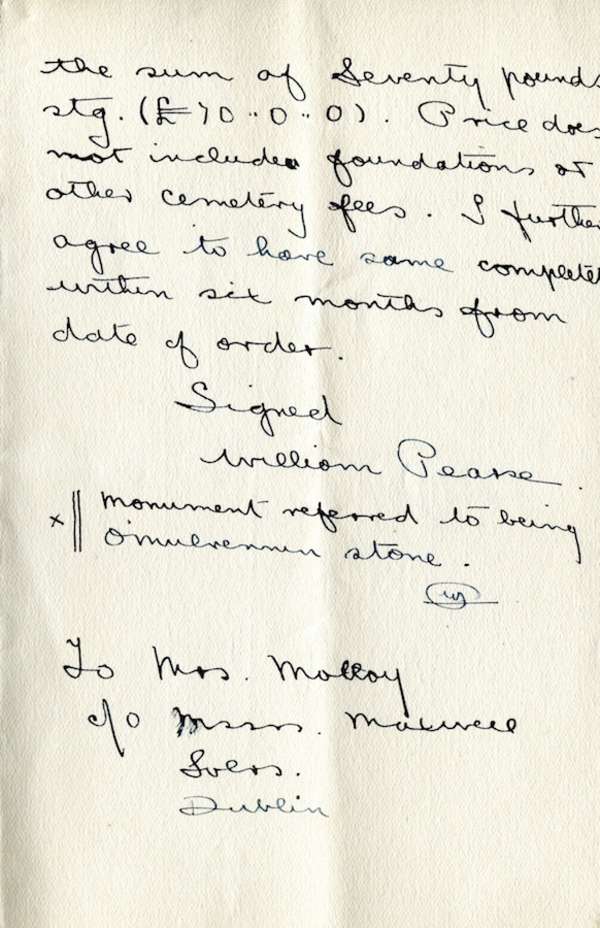 the sum of Seventy pounds
stg. (£70..0..0). Price does
not include foundations or
other cemetery fees. I further
agree to have same completed
within six months from
date of order.
Signed
William Pearse.
x || Monument referred to being
O'Mulrennin stone.
To Mrs. Molloy
c/o Messrs. Maxwell
Solrs.
Dublin